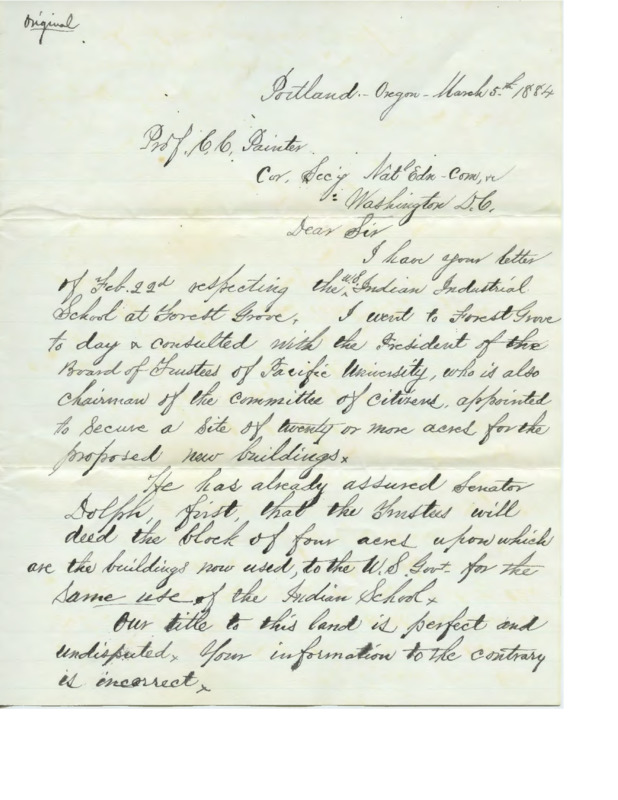 Original
Portland - Oregon - March 5.th 1884
Prof. C. C. Painter
Cor. Sec'y Natl Edn - Com,
Washington D.C.
Dear Sir
I have your letter
of Feb. 22d respecting the U.S. Indian Industrial
School at Forest Grove. I went to Forest Grove
to day & consulted with the President of the
Board of Trustees of Pacific University, who is also
chairman of the committee of citizens, appointed
to secure a site of twenty or more acres for the
proposed new buildings.
He has already assured Senator
Dolph, first, that the Trustees will
deed the block of four acres upon which
are the buildings now used, to the U.S. Govt. for the
same use of the Indian School.
Our title to this land is perfect and
undisputed. Your information to the contrary
is incorrect.